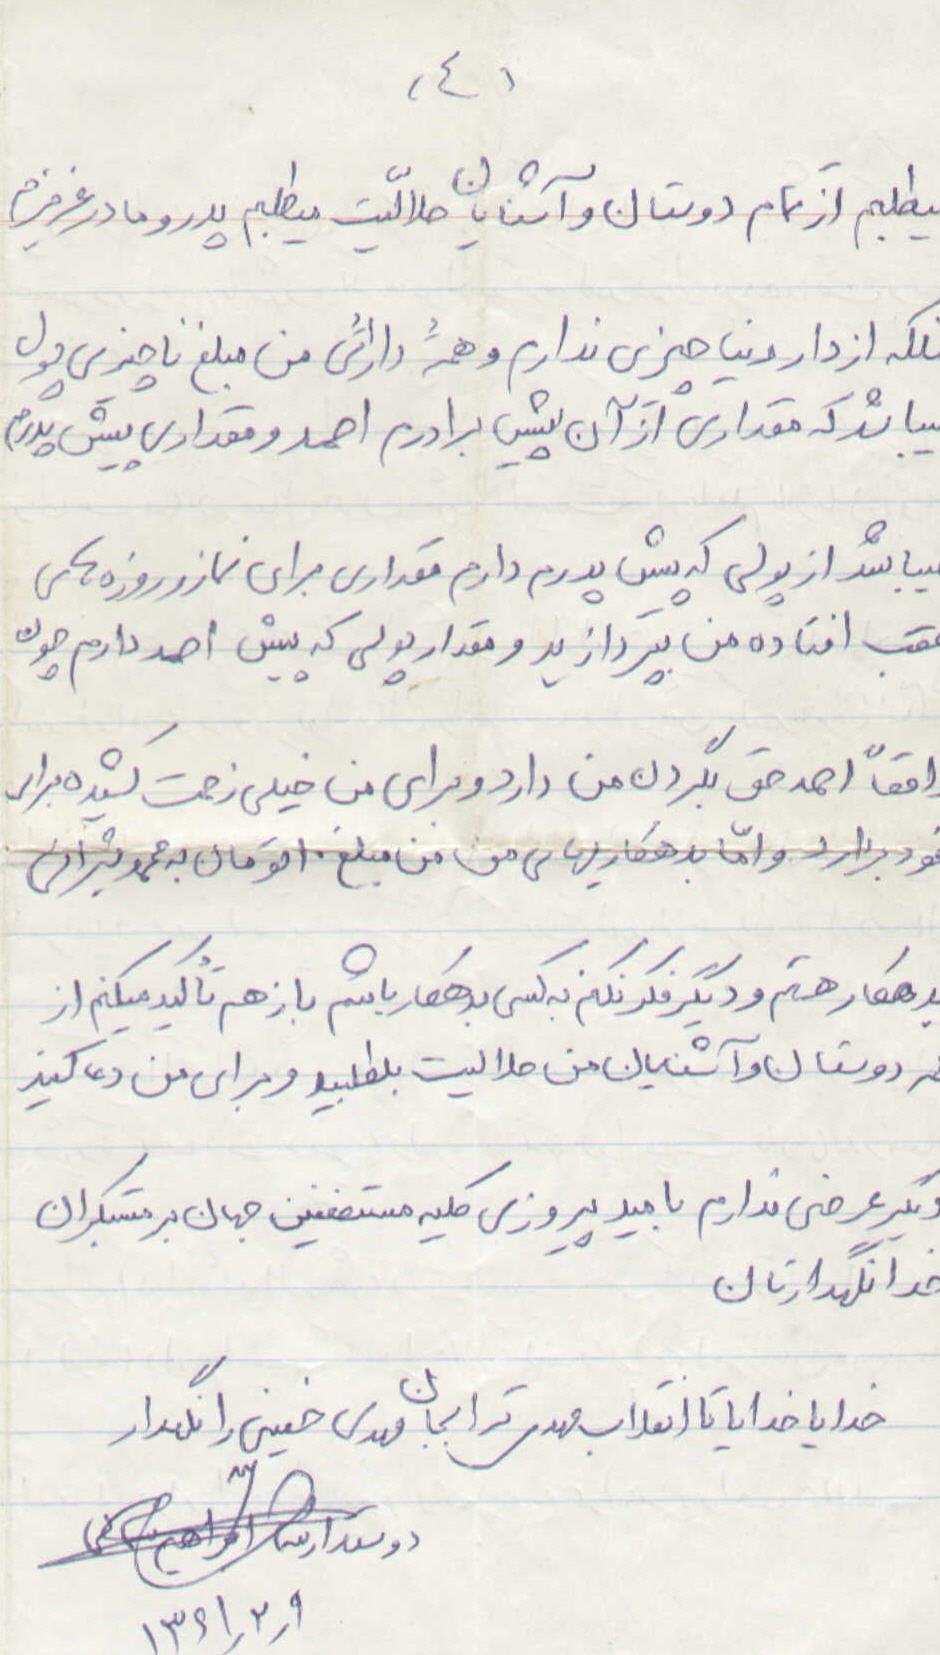 (٤)
میطلبم از تمام دوستان و آشنایان حلالیّت میطلبم پدر و مادر عزیزم
از دار دنیا چیزی ندارم و همهٔ دارائی من مبلغ ناچیزی پول
میباشد که مقداری از آن پیش برادرم احمد و مقداری پیش پدرم
میباشد از پولی که پیش پدرم دارم مقداری برای نماز و روزه های
عقب افتاده من بپردازید و مقدار پولی که پیش احمد دارم چون
واقعاً احمد حق بگردن من دارد و برای من خیلی زحمت کشیده برای
خود بردارد و امّا بدهکاریهای من من مبلغ ۱۰ تومان به محمد
بدهکار هستم و دیگر فکر نکنم به کسی بدهکار باشم باز هم تأکید میکنم از
دوستان و آشنایان من حلالیت بطلبید و برای من دعا کنید
دیگر عرضی ندارم بامید پیروزی کلیه مستضعفین جهان بر مستکبران
خدا نگهدارتان
خدایا خدایا تا انقلاب مهدی ترا بجان مهدی خمینی را نگهدار
دوستدار ابراهیم
۱۳۶۱٫۲٫۹